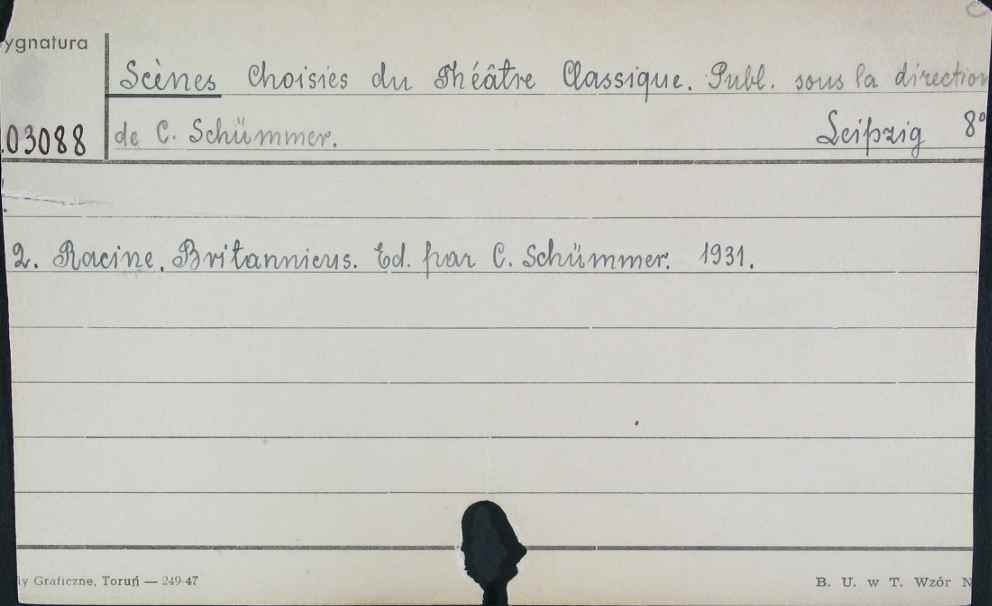 ygnatura
Scènes Choisies du Théâtre Classique. Publ. sous la direction
03088 de C. Schümmer. Leipzig 8°
2. Racine, Britannicus. Ed. par C. Schümmer. 1931.
ly Graficzne, Toruń — 249-47 B. U. w T. Wzór N